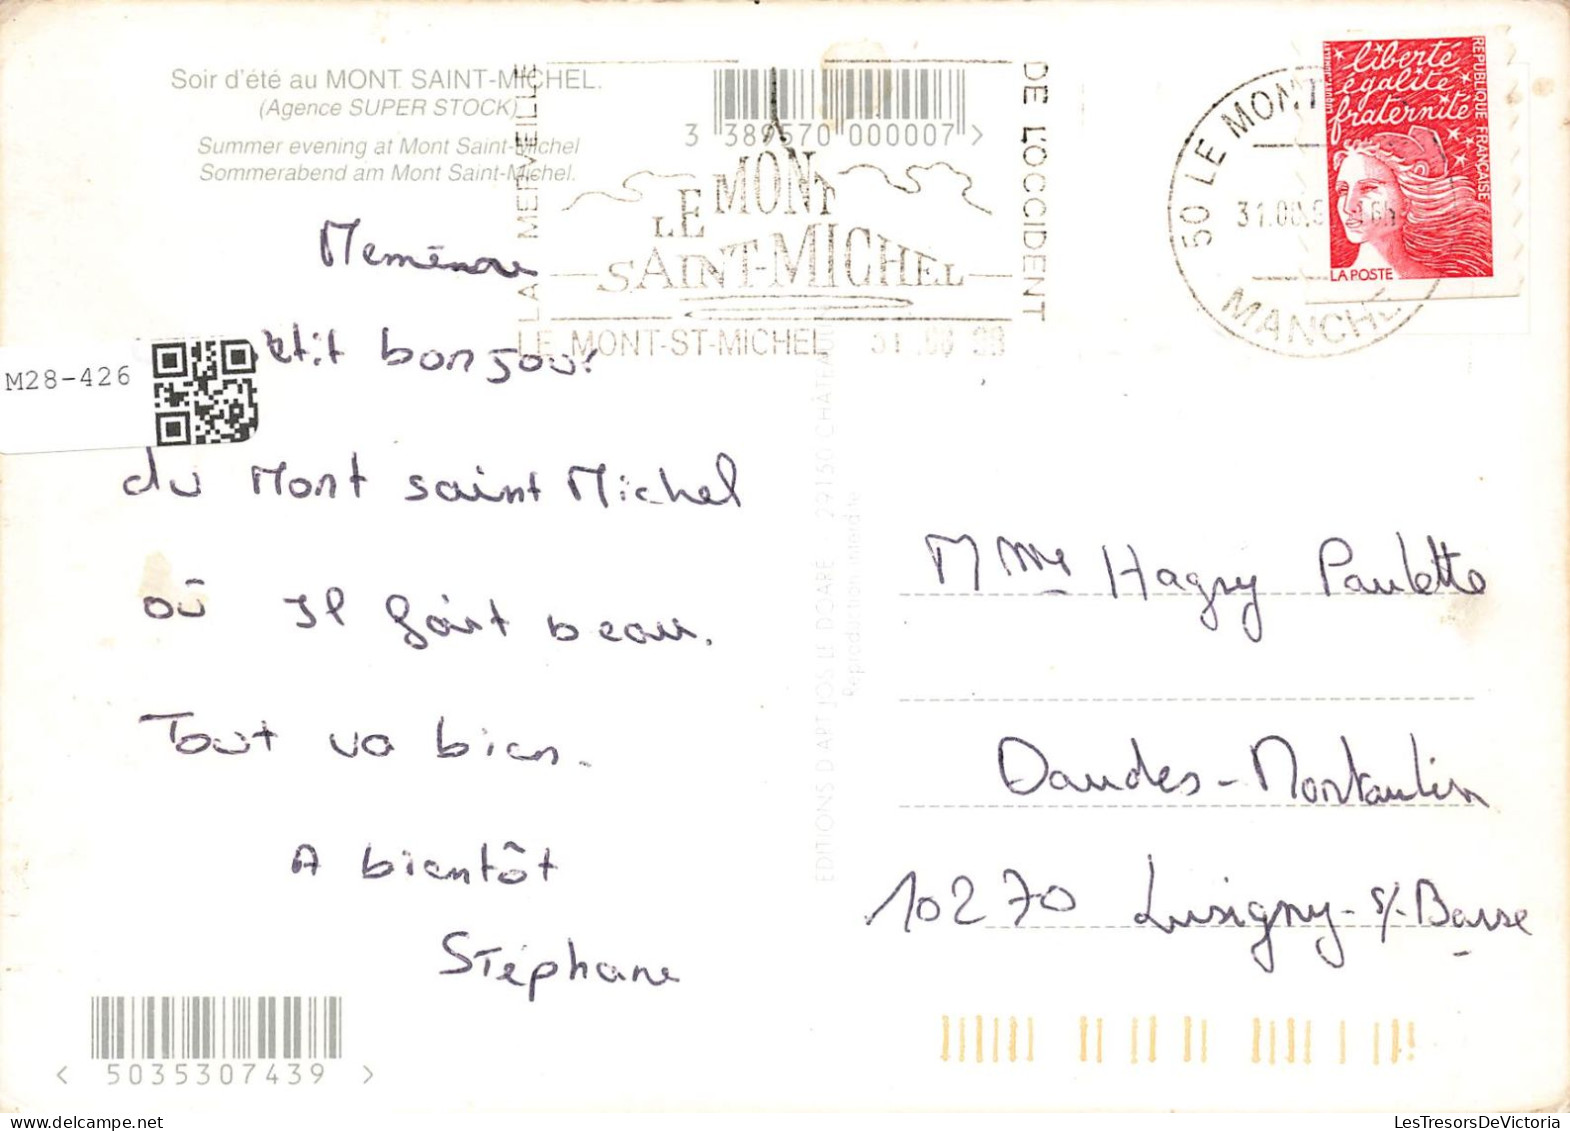 Soir d'été au MONT SAINT-MICHEL.
(Agence SUPER STOCK)
Summer evening at Mont Saint-Michel
Sommerabend am Mont Saint-Michel.
3 389570 000007 >
LA MERVEILLE
LE MONT
SAINT-MICHEL
DE L'OCCIDENT
LE MONT-ST-MICHEL 31 .08 98
50 LE MONT
31.08.9
MANCHE
liberté
égalité
fraternité
RÉPUBLIQUE FRANÇAISE
LA POSTE
M28-426
bonjour
du Mont saint Michel
où Il fait beau.
Tout va bien.
A bientôt
Stéphane
< 5035307439 >
EDITIONS D'ART JOS LE DOARE 29150 CHÂTEAULIN
Reproduction interdite
Mme Hagry Paulette
Daudes-Montaulin
10270 Lusigny-s/-Barse
LesTresorsDeVictoria